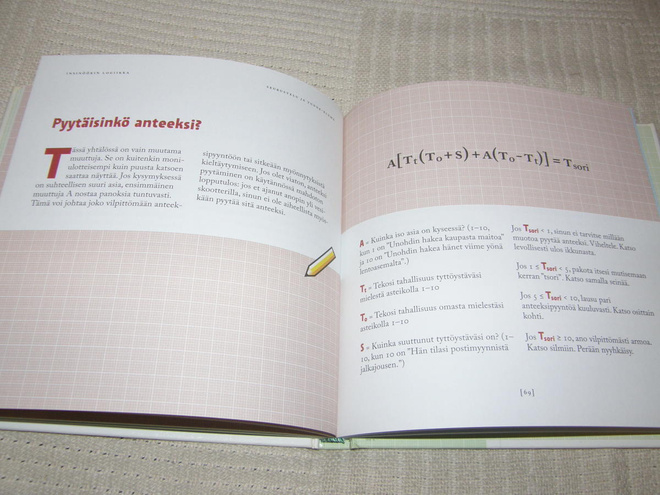 INSINÖÖRIN LOGIIKKA
Pyytäisinkö anteeksi?
Tässä yhtälössä on vain muutama
muuttuja. Se on kuitenkin moni-
ulotteisempi kuin puusta katsoen
saattaa näyttää. Jos kysymyksessä
on suhteellisen suuri asia, ensimmäinen
muuttuja A nostaa panoksia tuntuvasti.
Tämä voi johtaa joko vilpittömään anteek-
sipyyntöön tai sitkeään myönnytyksistä
kieltäytymiseen. Jos olet viaton, anteeksi
pyytäminen on käytännössä mahdoton
lopputulos: jos et ajanut anopin yli
skootterilla, sinun ei ole aiheellista
kään pyytää sitä anteeksi.
A[Tt(To+S)+A(To-Tt)]=Tsori
A = Kuinka iso asia on kyseessä? (1–10,
kun 1 on "Unohdin hakea kaupasta maitoa"
ja 10 on "Unohdin hakea hänet viime yönä
lentoasemalta".)
Tt = Tekosi tahallisuus tyttöystäväsi
mielestä asteikolla 1–10
To = Tekosi tahallisuus omasta mielestäsi
asteikolla 1–10
S = Kuinka suuttunut tyttöystäväsi on? (1–
10, kun 10 on "Hän tilasi postimyynnistä
jalkajousen.")
Jos Tsori < 1, sinun ei tarvitse millään
muotoa pyytää anteeksi. Viheltele. Katso
levollisesti ulos ikkunasta.
Jos 1 ≤ Tsori < 5, pakota itsesi mutisemaan
kerran "tsori". Katso samalla seinää.
Jos 5 ≤ Tsori < 10, lausu pari
anteeksipyyntöä kuuluvasti. Katso osittain
kohti.
Jos Tsori ≥ 10, ano vilpittömästi armoa.
Katso silmiin. Perään nyyhkäisy.
[69]